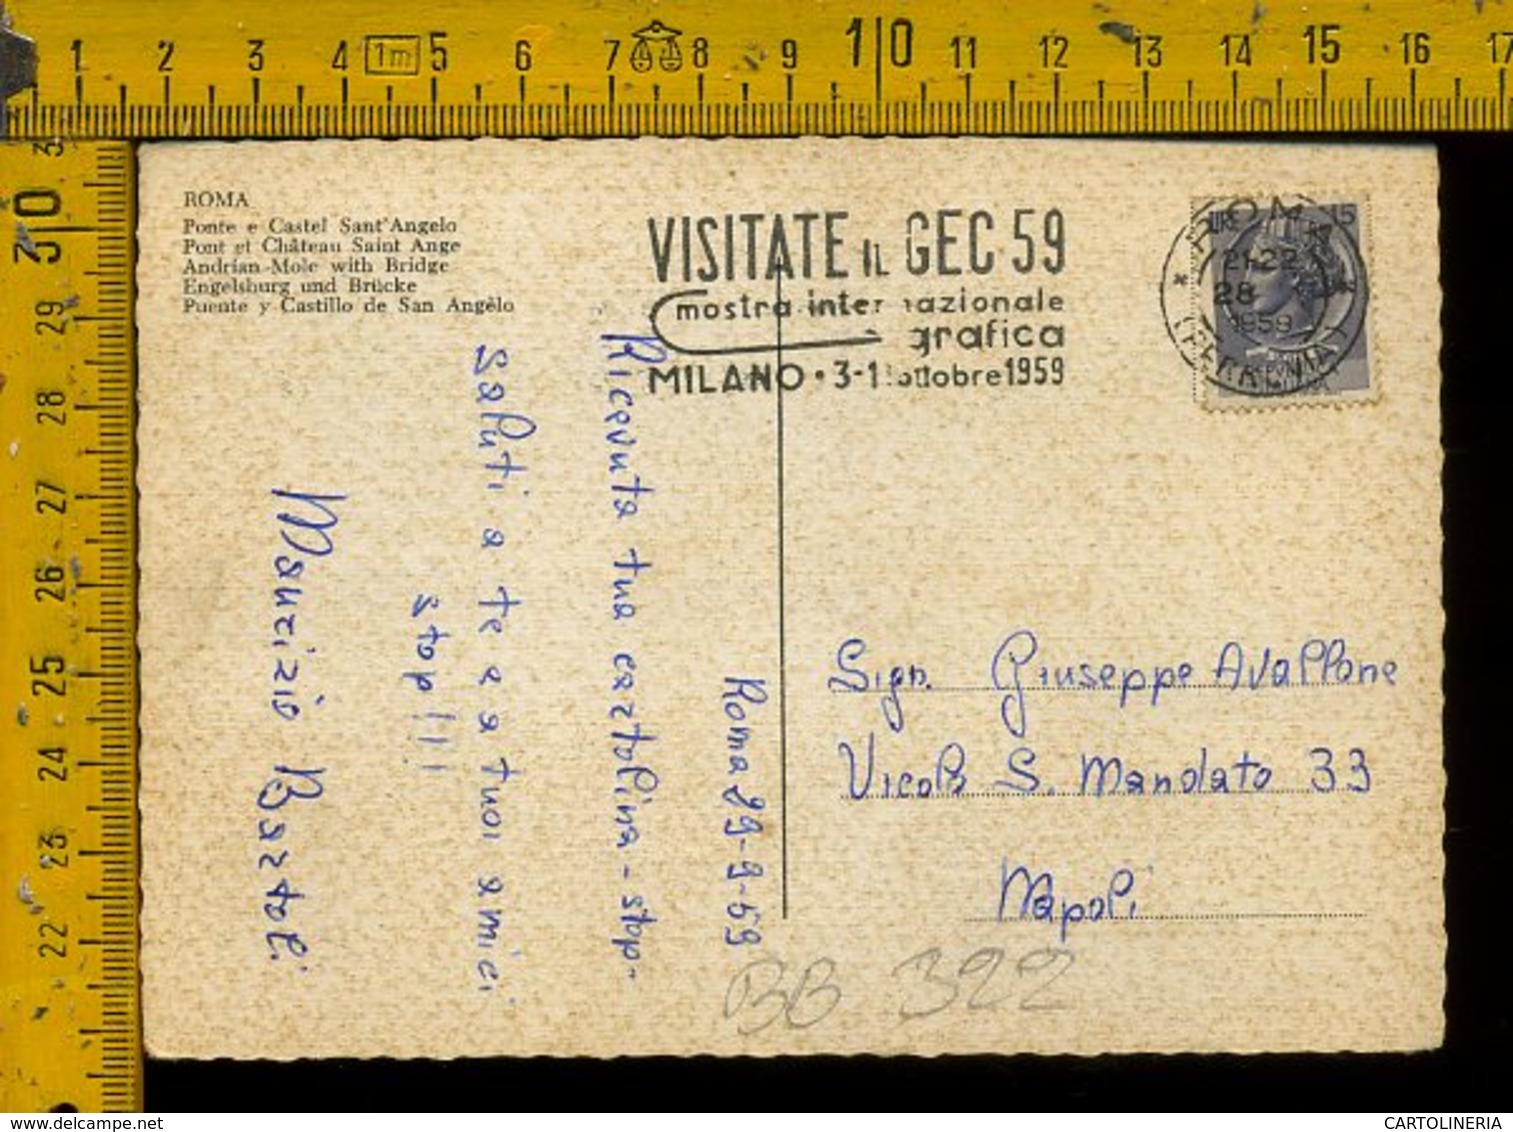 1 2 3 4 1m 5 6 7 8 9 10 11 12 13 14 15 16 17
30 29 28 27 26 25 24 23 22
ROMA
Ponte e Castel Sant'Angelo
Pont et Château Saint Ange
Andrian-Mole with Bridge
Engelsburg und Brücke
Puente y Castillo de San Angêlo
VISITATE IL GEC 59
mostra internazionale
grafica
MILANO • 3-1 ottobre 1959
LIRE 15
ROMA
21-22
28
1959
(FERROVIA)
Roma 29-9-59
Ricevuta tua cartolina - stop -
Saluti a te e a tuoi amici
stop!!!
Maurizio Bartoli
Sign. Giuseppe Avallone
Vicolo S. Mandato 33
Napoli
BB 322
www.delcampe.net
CARTOLINERIA